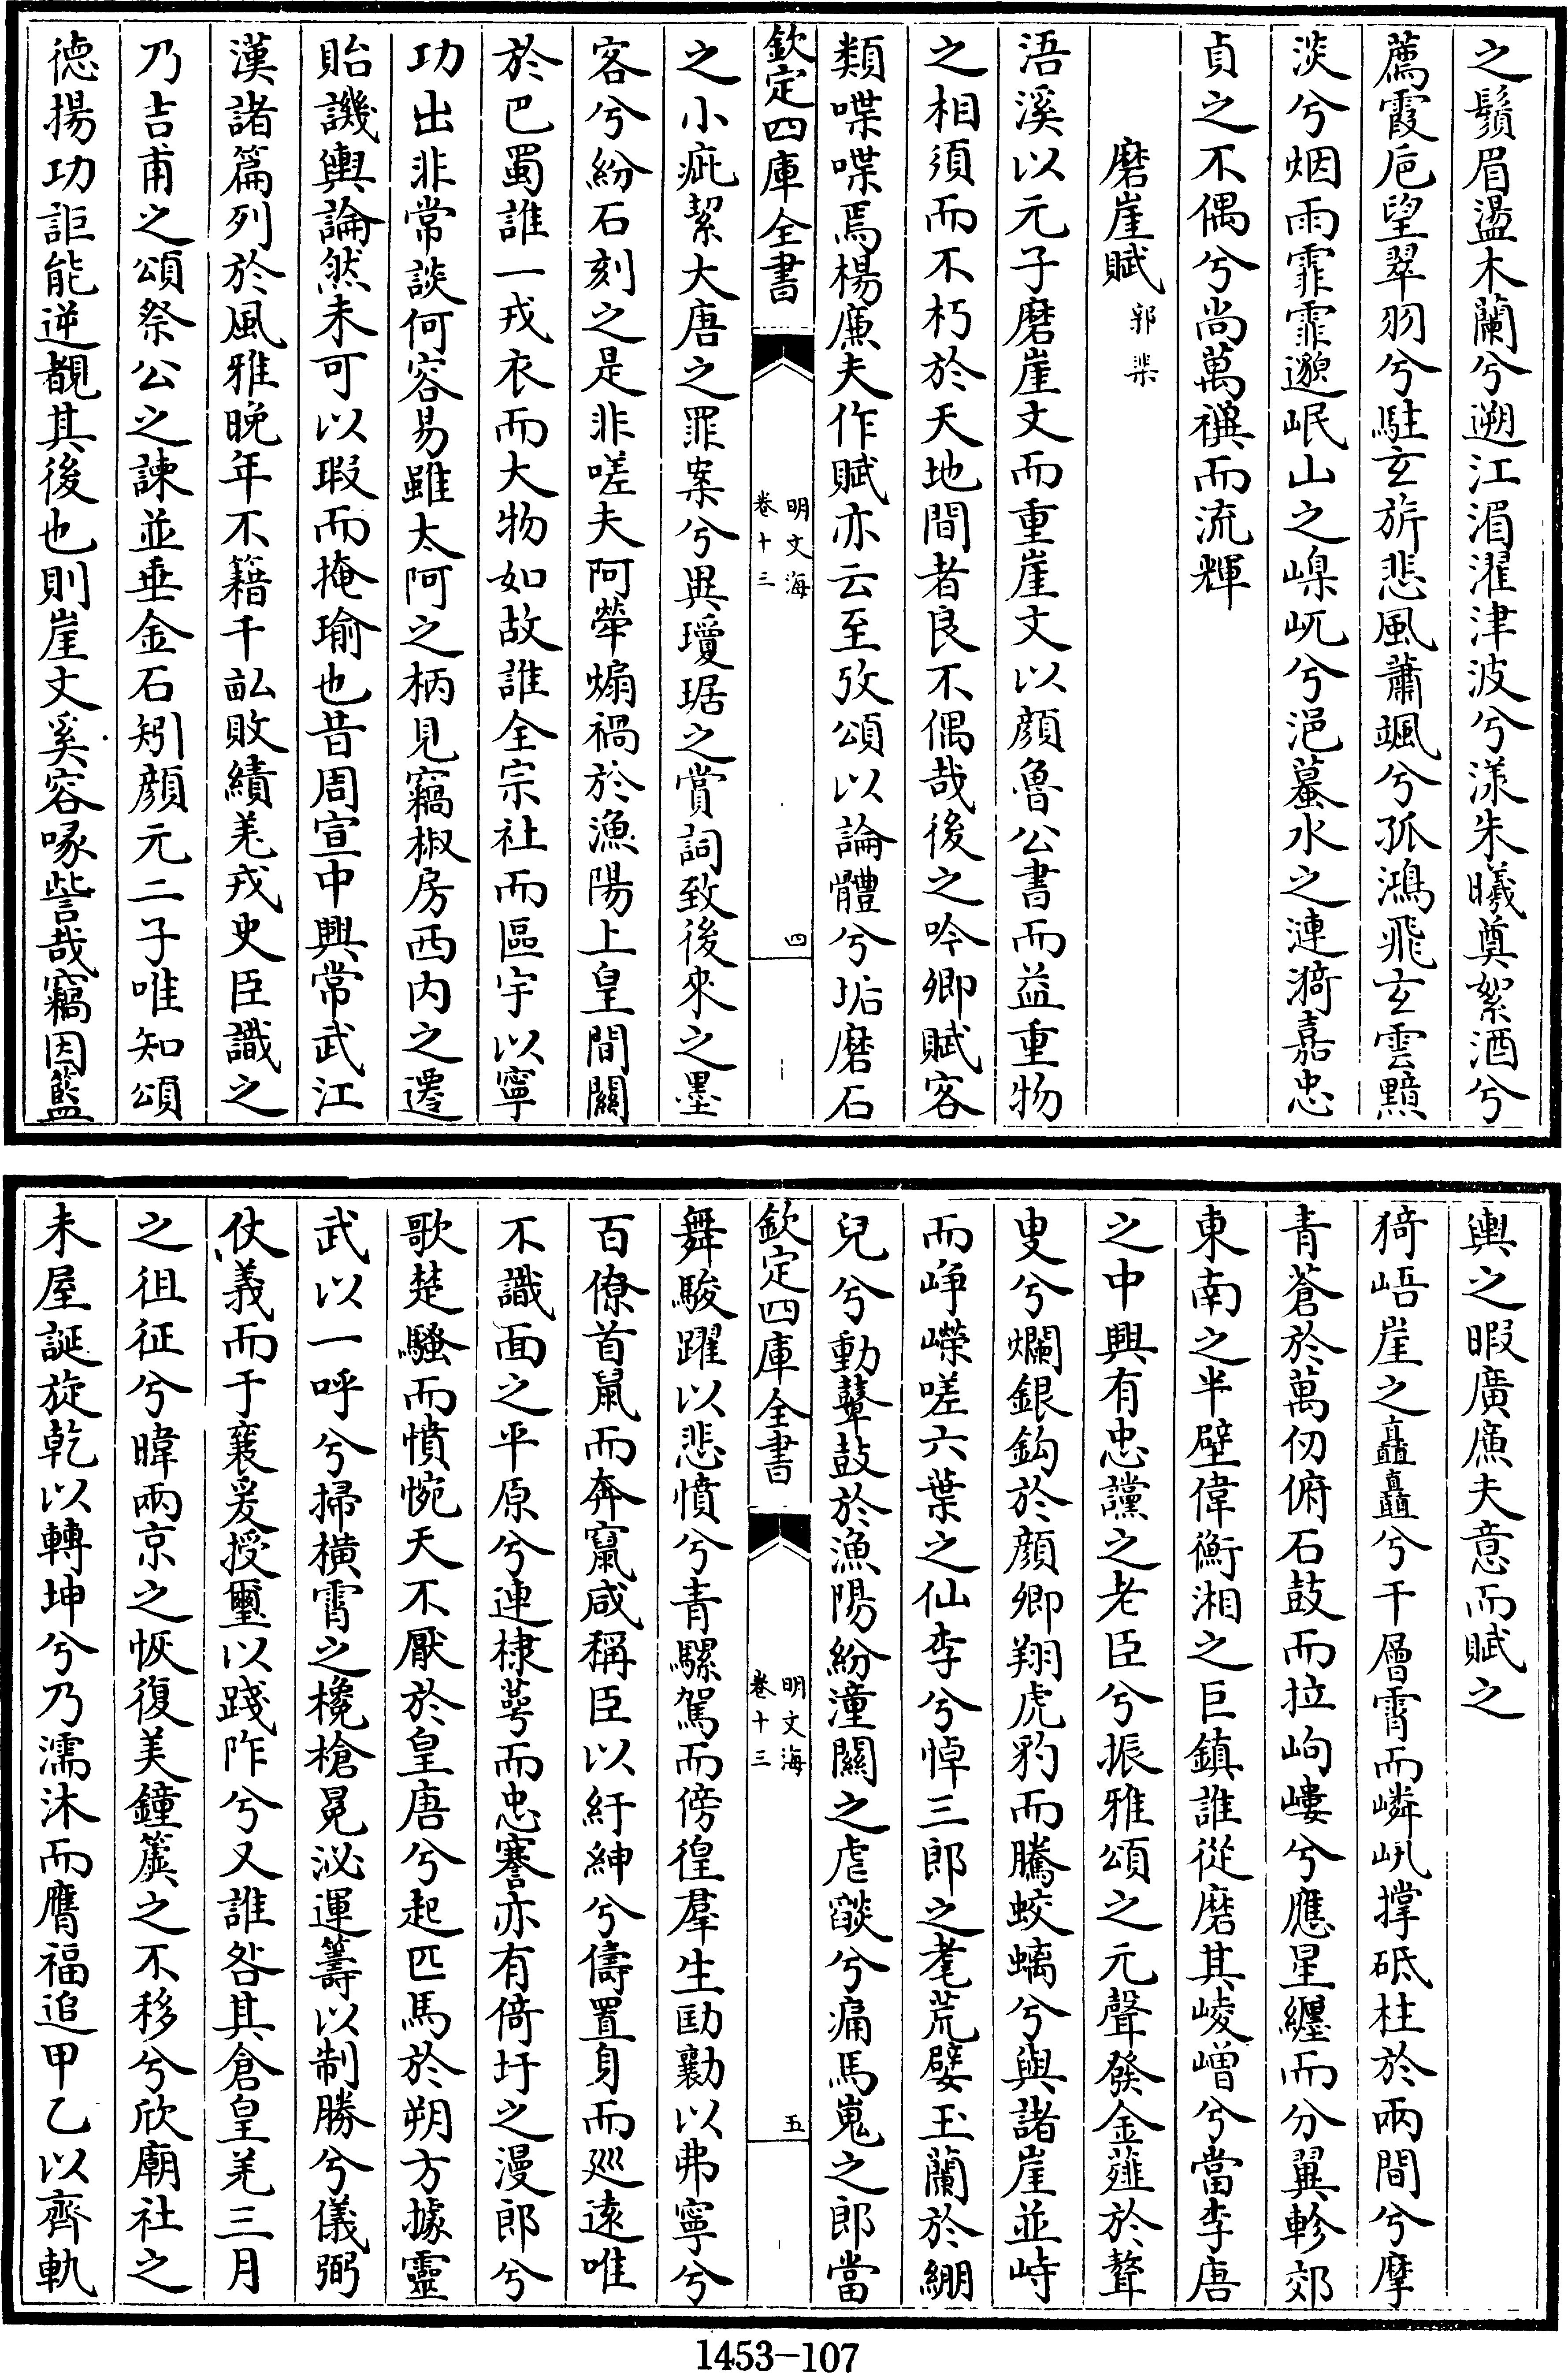 之鬚眉盪木蘭兮遡江湄濯津波兮漾朱曦奠絮酒兮
薦霞巵望翠羽兮駐玄旂悲風蕭颯兮孤鴻飛玄雲黯
淡兮烟雨霏霏邈岷山之嵲屼兮浥蟇水之漣漪嘉忠
貞之不偶兮尚萬禩而流輝
磨崖賦 郭棐
浯溪以元子磨崖文而重崖文以顔魯公書而益重物
之相須而不朽於天地間者良不偶哉後之吟卿賦客
類喋喋焉楊廉夫作賦亦云至攷頌以論體兮垢磨石
欽定四庫全書
明文海
卷十三
四
之小疵絜大唐之罪案兮異瓊琚之賞詞致後來之墨
客兮紛石刻之是非嗟夫阿犖煽禍於漁陽上皇間關
於巴蜀誰一戎衣而大物如故誰全宗社而區宇以寧
功出非常談何容易雖太阿之柄見竊椒房西内之遷
貽譏輿論然未可以瑕而掩瑜也昔周宣中興常武江
漢諸篇列於風雅晚年不籍千畝敗績羌戎史臣識之
乃吉甫之頌祭公之諫並垂金石矧顔元二子唯知頌
徳揚功詎能逆覩其後也則崖文奚容啄訾哉竊因籃
輿之暇廣廉夫意而賦之
猗峿崖之矗矗兮干層霄而嶙屼撑砥柱於兩間兮摩
青蒼於萬仞俯石鼓而拉岣嶁兮應星纏而分翼軫郊
東南之半壁偉衡湘之巨鎮誰從磨其崚嶒兮當李唐
之中興有忠讜之老臣兮振雅頌之元聲發金薤於聱
叟兮爛銀鈎於顔卿翔虎豹而騰蛟螭兮與諸崖並峙
而崢嶸嗟六葉之仙李兮悼三郎之耄荒嬖玉蘭於綳
兒兮動鼙鼓於漁陽紛潼關之虐燄兮痛馬嵬之郎當
欽定四庫全書
明文海
卷十三
五
舞駿躍以悲憤兮青騾駕而傍徨羣生劻勷以弗寧兮
百僚首鼠而奔竄咸稱臣以紆紳兮儔置身而廵遠唯
不識面之平原兮連棣萼而忠謇亦有倚圩之漫郎兮
歌楚騷而憤惋天不厭於皇唐兮起匹馬於朔方據靈
武以一呼兮掃橫霄之欃槍冕泌運籌以制勝兮儀弼
仗義而于襄爰授璽以踐阼兮又誰咎其倉皇羌三月
之徂征兮暐兩京之恢復美鐘簴之不移兮欣廟社之
未屋誕旋乾以轉坤兮乃濡沐而膺福追甲乙以齊軌
1453-107